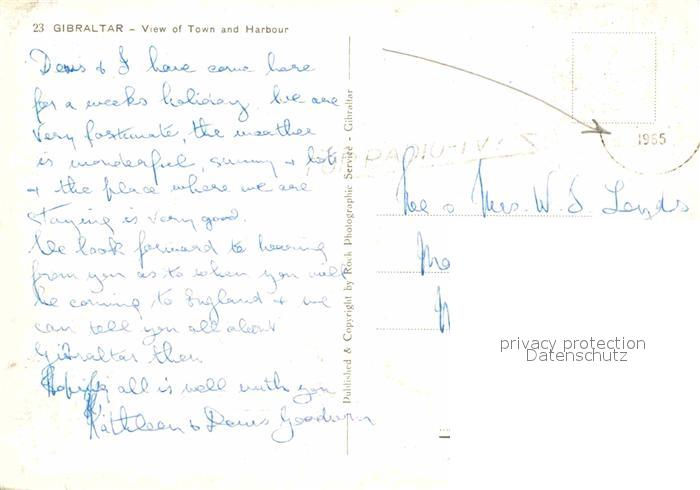 23 GIBRALTAR – View of Town and Harbour
Denis & I have come here
for a weeks holiday. We are
very fortunate, the weather
is wonderful, sunny & hot
& the place where we are
staying is very good.
We look forward to hearing
from you as to when you will
be coming to England & we
can tell you all about
Gibraltar then.
Hoping all is well with you
Kathleen & Denis
Published & Copyright by Rock Photographic Service - Gibraltar
1965
Mrs. W. S.
privacy protection
Datenschutz